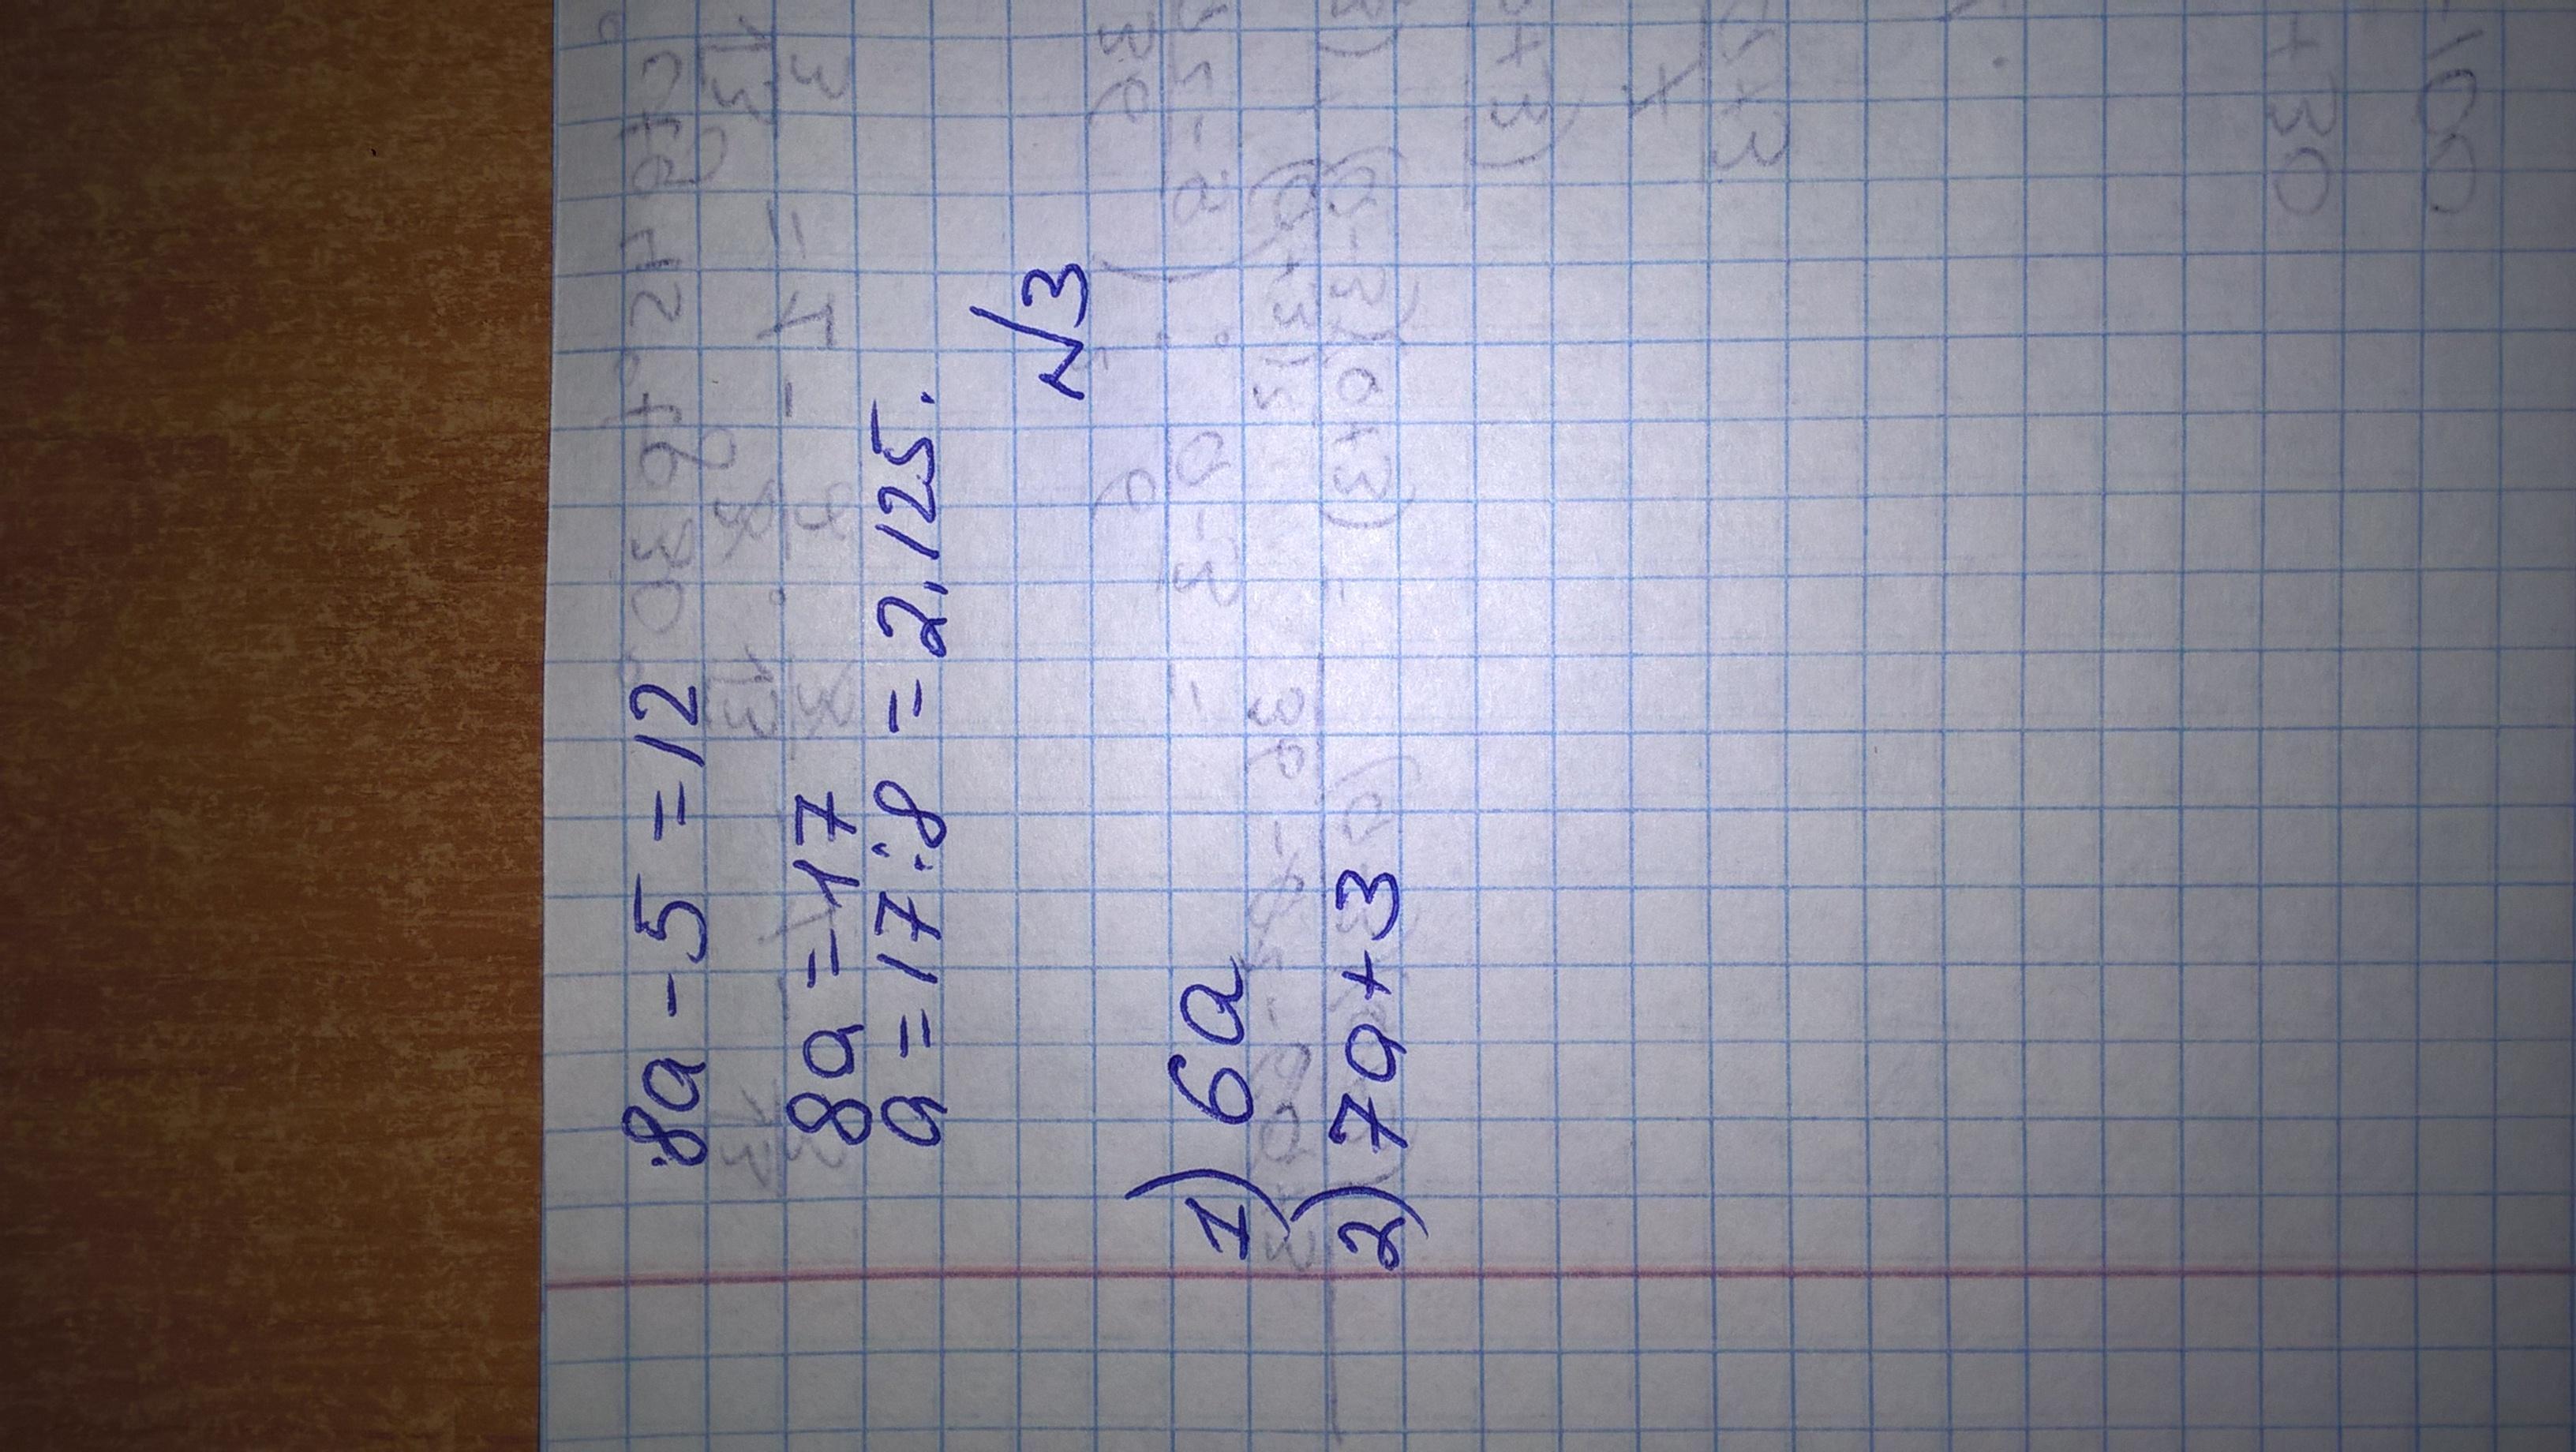 8a - 5 = 12
8a = 17
a = 17 : 8 = 2,125.
N3
1) 6a
2) 7a + 3